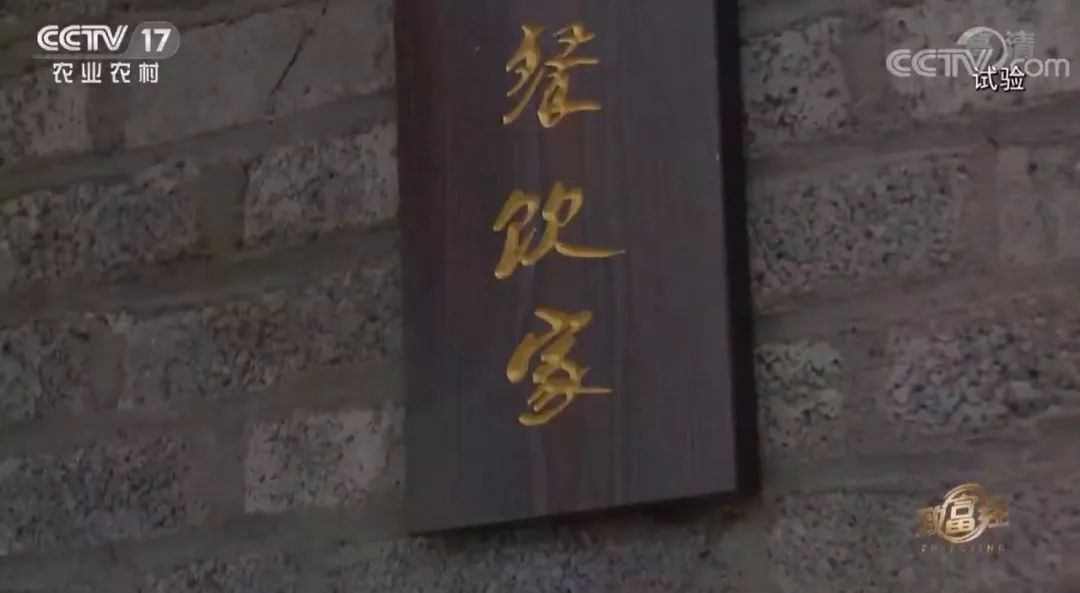 CCTV 17
农业农村
高清
CCTV.com
试验
餐
饮
家
致富经
ZHIFUJING